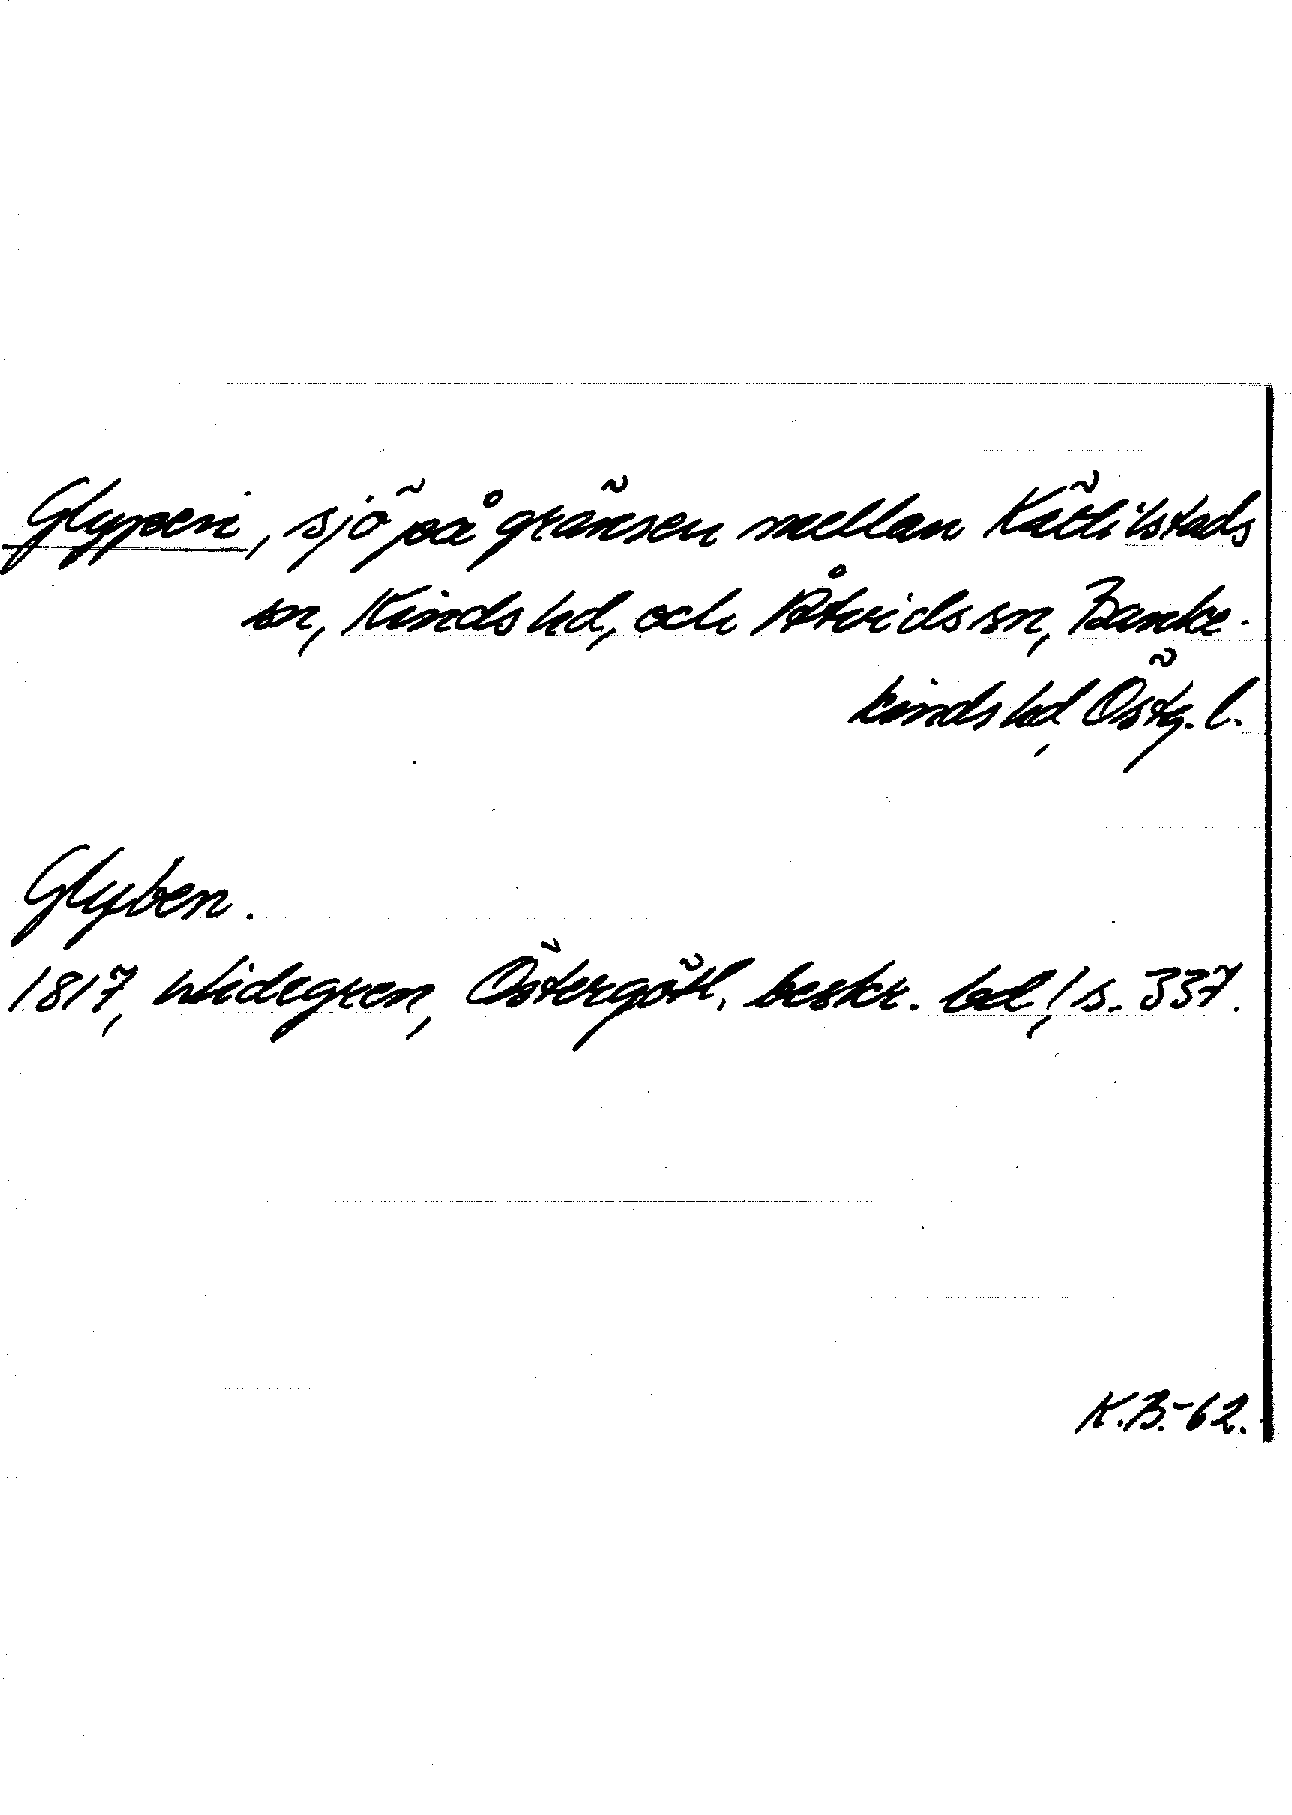 Glypen, sjö på gränsen mellan Kättilstads
sn, Kinds hd, och Åtvids sn, Banke-
kinds hd, Östg. l.
Glyben.
1817, Widegren, Östergötl. beskr. bd 1, s. 337.
K.B.-62.